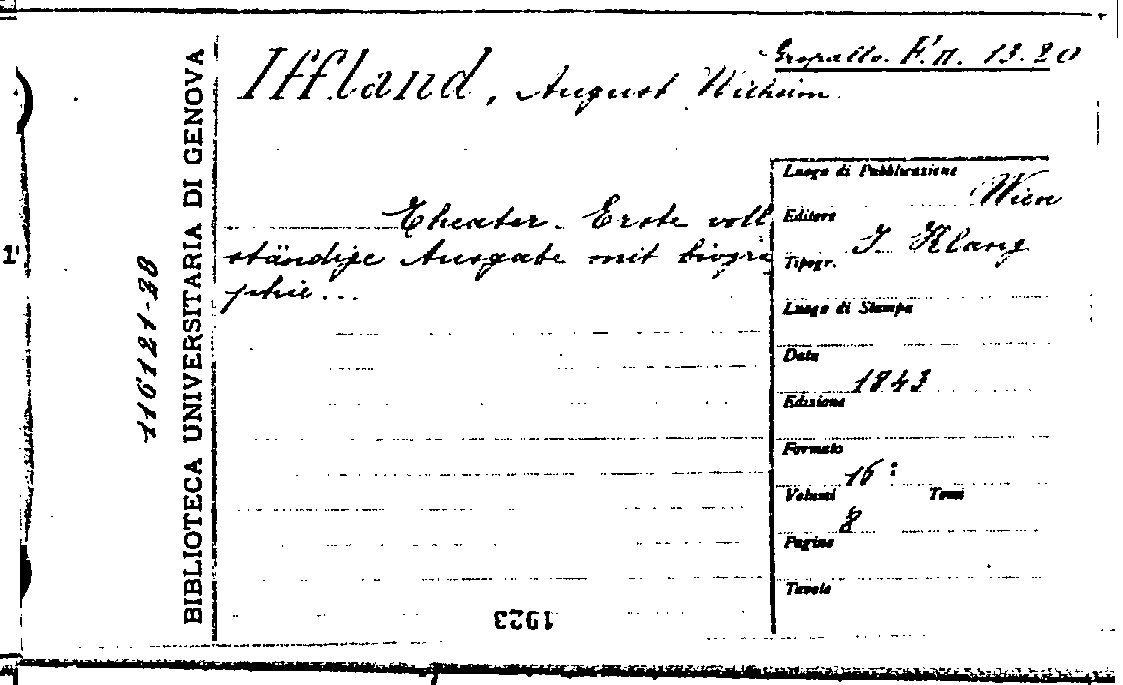 Gropallo. F.II. 13.20
Iffland, August Wilhelm.
Theater. Erste voll
ständige Ausgabe mit biogra
phie...
Luogo di Pubblicazione
Wien
Editore
J. Klang
Tipogr.
Luogo di Stampa
Data
1843
Edizione
Formato
16°
Volumi Tomi
8
Pagine
Tavole
1923
BIBLIOTECA UNIVERSITARIA DI GENOVA
116121-28